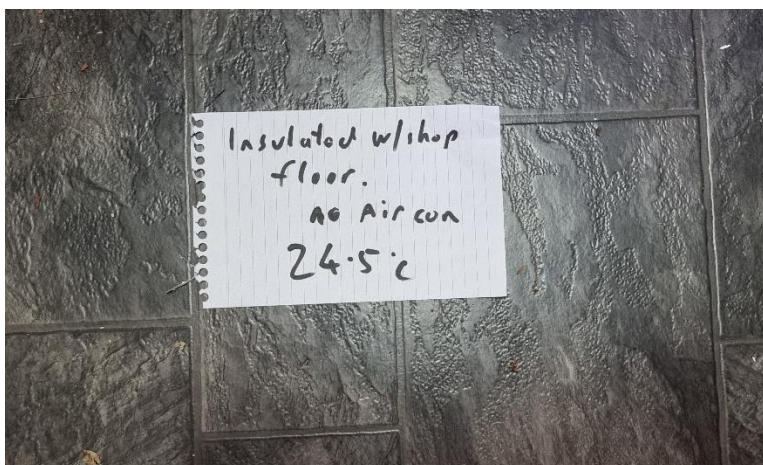 Insulated w/shop
floor.
no Air con
24.5°c